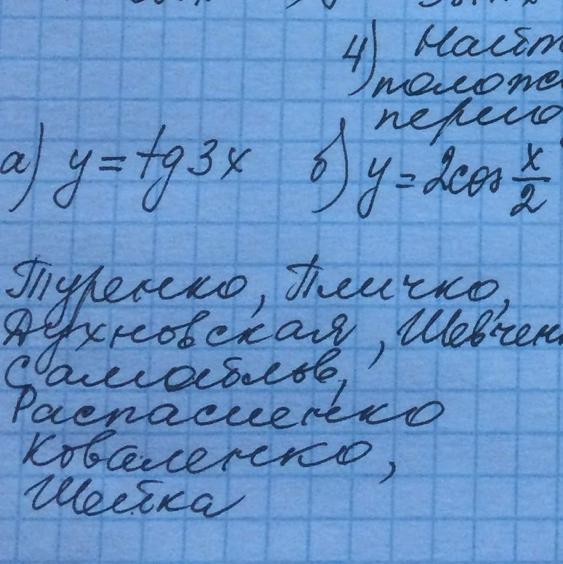 4) Найт
полож
перио
а) y = tg 3x б) y = 2cos x/2
Туренко, Пличко,
Духновская, Шевчен
Самойлов,
Распасиенко
Коваленко,
Шейка